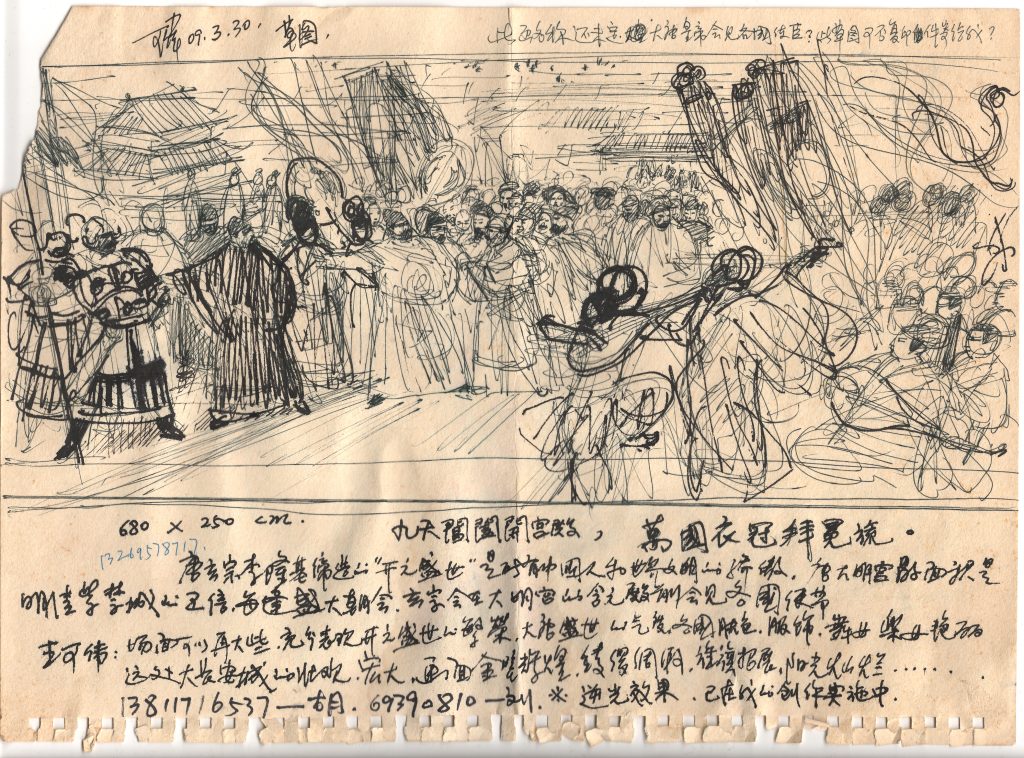 09.3.30. 草图.
此画名称还未定 大唐皇帝会见各国使臣？此草图可否复印件寄给我？
680 × 250 cm.
九天閶闔開宮殿，萬國衣冠拜冕旒。
13269578717.
唐玄宗李隆基缔造的“开元盛世”是所有中国人和世界文明的骄傲，唐大明宫殿面积是
明清紫禁城的五倍，每逢盛大朝会，玄宗会在大明宫的含元殿前会见各国使节
场面可以再大些，充分表现开元盛世的繁荣，大唐盛世的气象，各国肤色，服饰，舞女乐女艳丽
大长安城的壮观，宏大，画面金碧辉煌，绫罗绸缎，旌旗招展，阳光灿烂......
13811716537— 69390810—刘. ※ 逆光效果. 已在我的创作实施中.